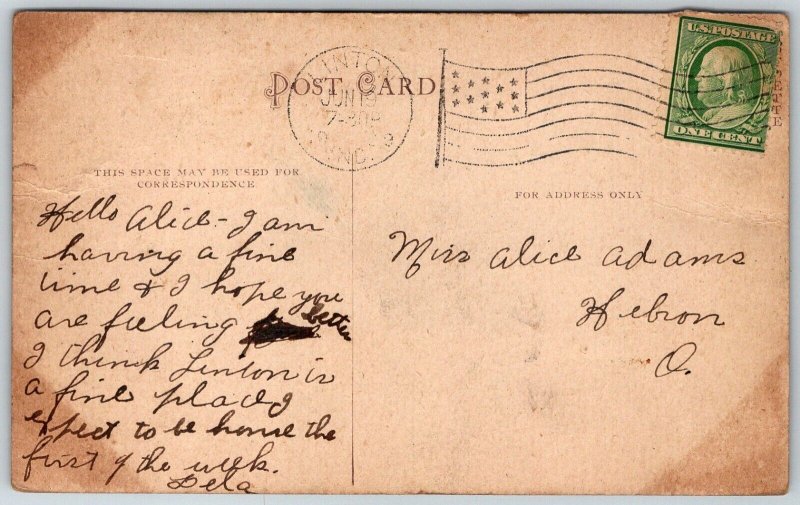 U.S. POSTAGE
ONE CENT
LINTON
JUN 19
7-30 P
IND.
POST CARD
THIS SPACE MAY BE USED FOR
CORRESPONDENCE
FOR ADDRESS ONLY
Hello Alice - I am
having a fine
time & I hope you
are feeling better
I think Linton is
a fine place I
expect to be home the
first of the week.
Dela
Miss Alice Adams
Hebron
O.